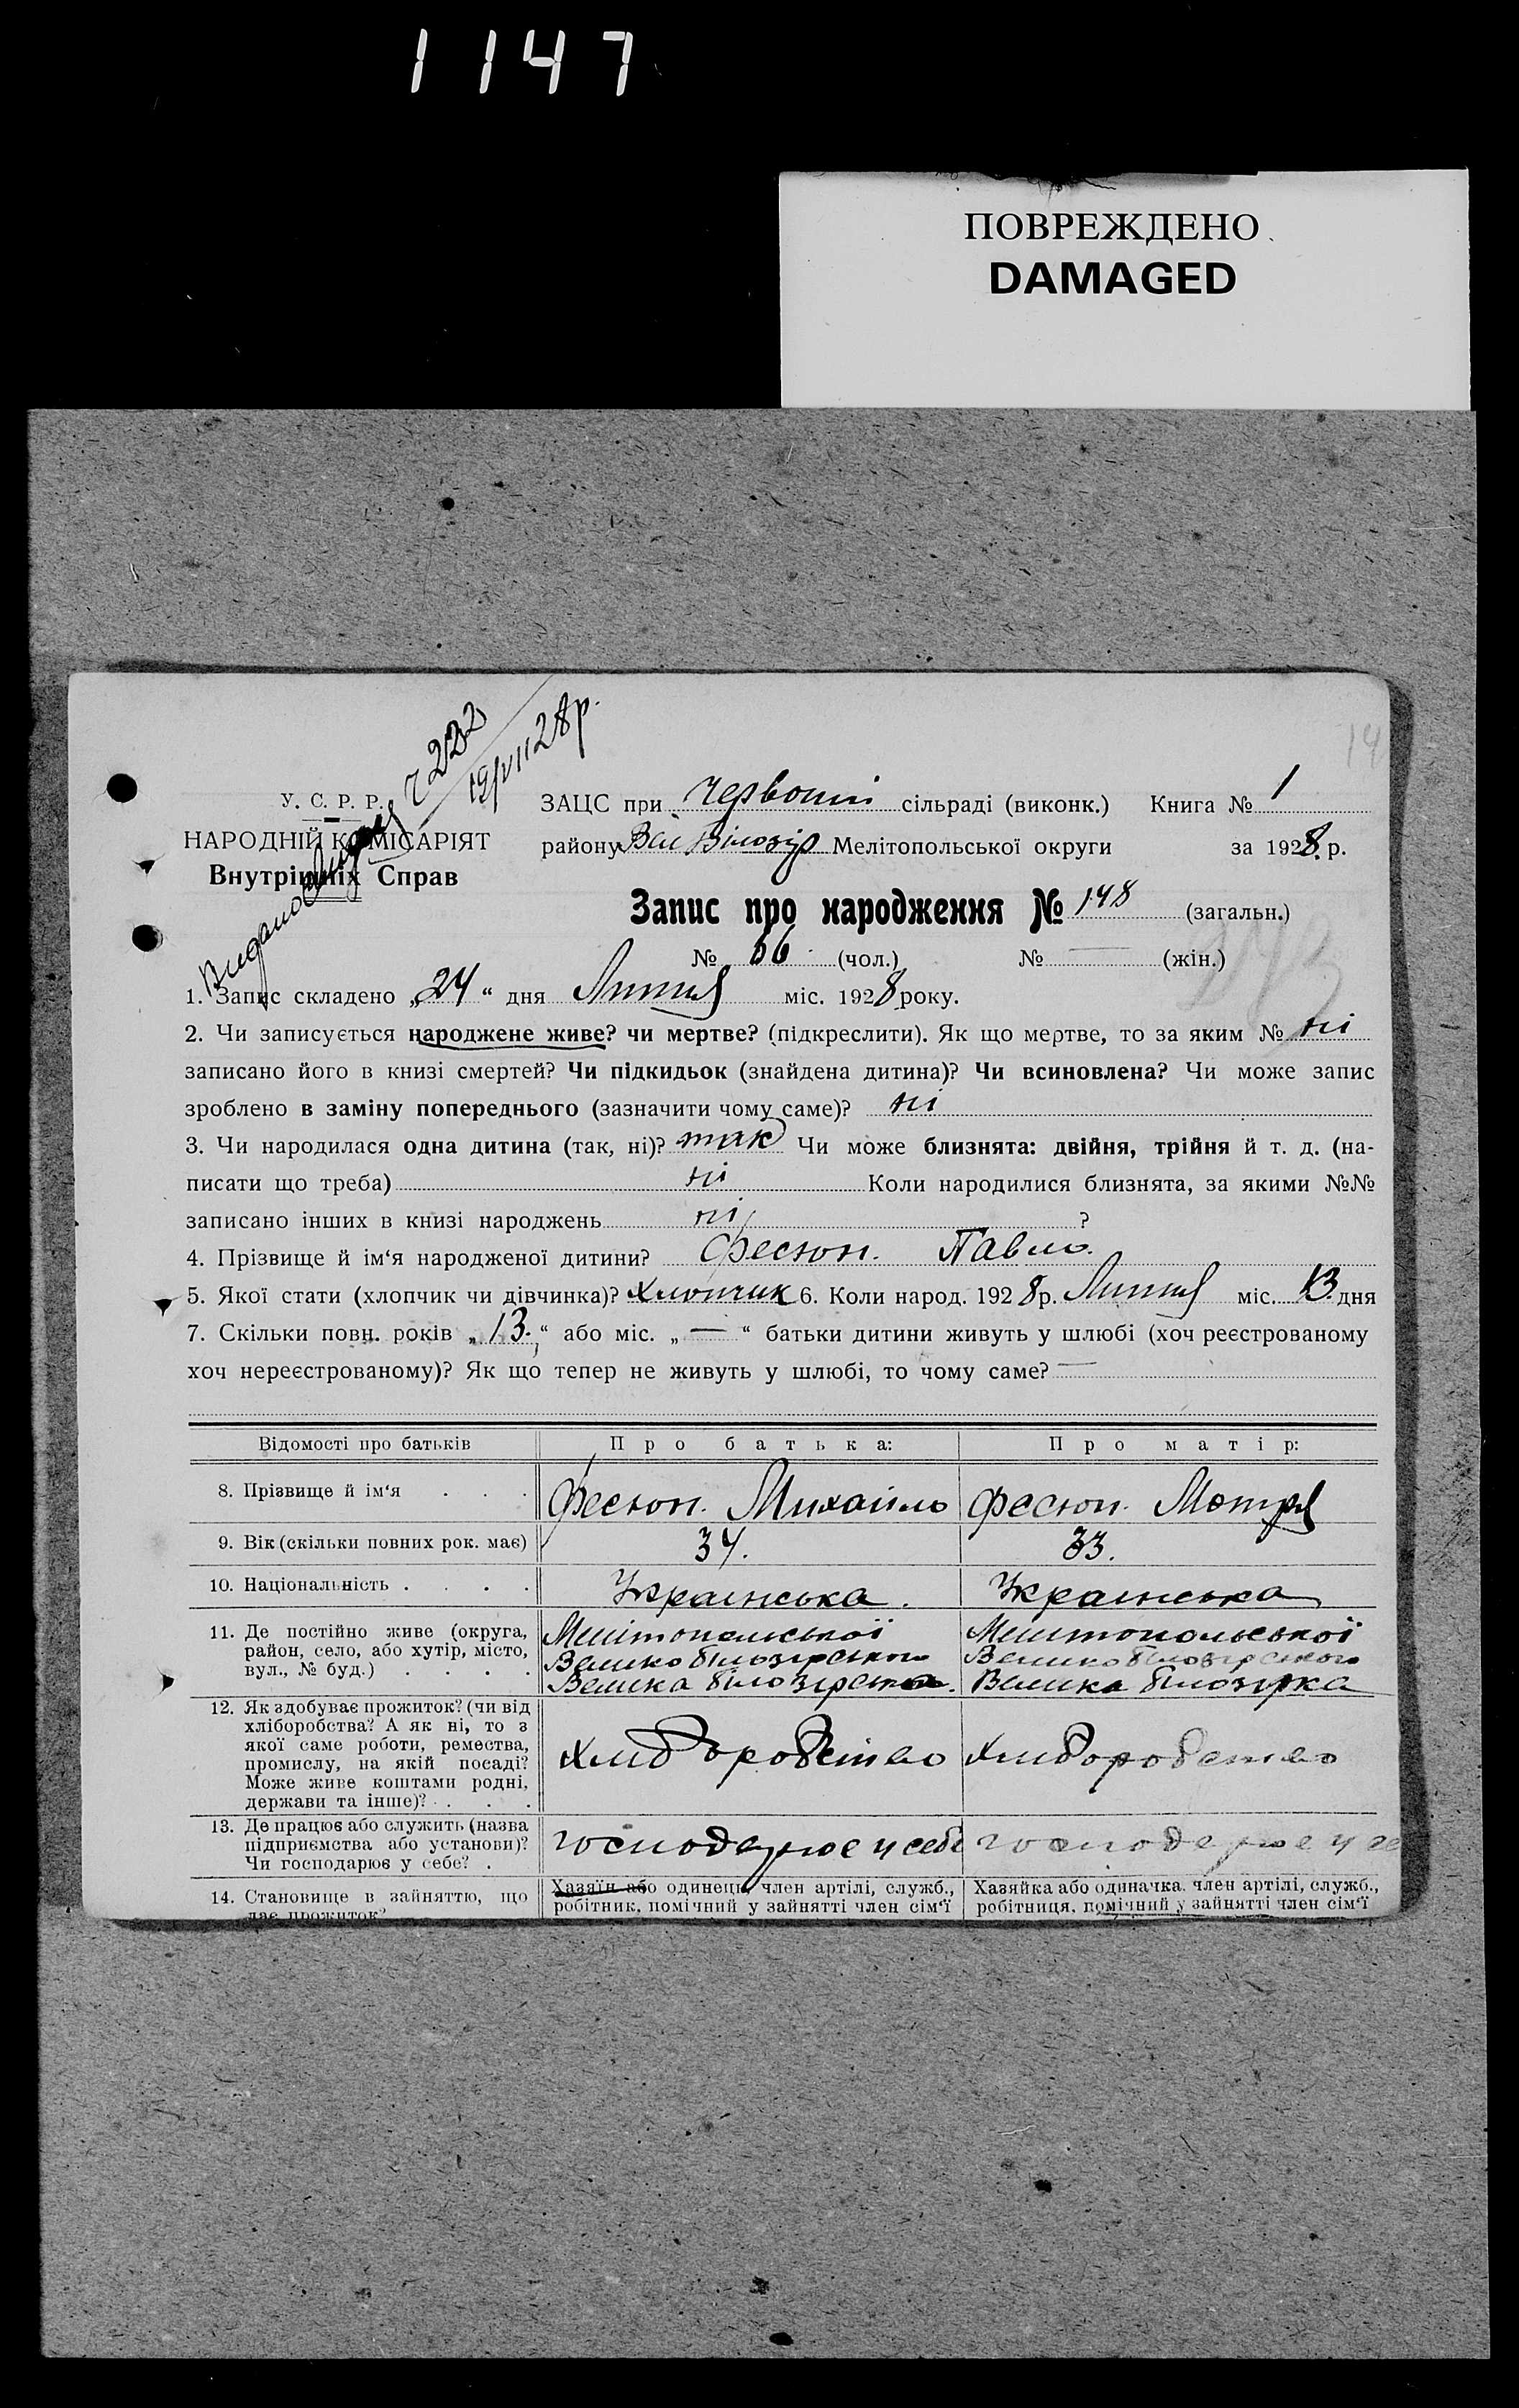 1147
ПОВРЕЖДЕНО
DAMAGED
14
19/VII 28р.
У. С. Р. Р.
НАРОДНІЙ КОМІСАРІЯТ
Внутрішніх Справ
ЗАЦС при Червоній сільраді (виконк.) Книга № 1
району Вел Білозір Мелітопольської округи за 1928 р.
Запис про народження № 148 (загальн.)
№ 66 (чол.) № — (жін.)
1. Запис складено „24“ дня Липня міс. 1928 року.
2. Чи записується народжене живе? чи мертве? (підкреслити). Як що мертве, то за яким № ні
записано його в книзі смертей? Чи підкидьок (знайдена дитина)? Чи всиновлена? Чи може запис
зроблено в заміну попереднього (зазначити чому саме)? ні
3. Чи народилася одна дитина (так, ні)? так Чи може близнята: двійня, трійня й т. д. (на-
писати що треба) ні Коли народилися близнята, за якими №№
записано інших в книзі народжень ні ?
4. Прізвище й ім‘я народженої дитини? Фесюн. Павло.
5. Якої стати (хлопчик чи дівчинка)? Хлопчик 6. Коли народ. 1928 р. Липня міс. 13 дня
7. Скільки повн. років „13.“ або міс. „—“ батьки дитини живуть у шлюбі (хоч реєстрованому
хоч нереєстрованому)? Як що тепер не живуть у шлюбі, то чому саме? —
Відомості про батьків Про батька: Про матір:
8. Прізвище й ім‘я . . . Фесюн. Михайло Фесюн. Мотря
9. Вік (скільки повних рок. має) 34. 33.
10. Національність . . . . Українська. Українська
11. Де постійно живе (округа, Мелітопольської Мелітопольської
район, село, або хутір, місто, Великобілозірського Великобілозірського
вул., № буд.) . . . . Велика Білозірка Велика Білозірка
12. Як здобуває прожиток? (чи від
хліборобства? А як ні, то з
якої саме роботи, ремества, Хліборобство Хліборобство
промислу, на якій посаді?
Може живе коштами родні,
держави та інше)? . . .
13. Де працює або служить (назва
підприємства або установи)? господарює у себе господарює у се
Чи господарює у себе? .
14. Становище в зайняттю, що Хазяїн або одинець, член артілі, служб., Хазяйка або одиначка, член артілі, служб.,
дає прожиток? робітник, помічний у зайнятті член сім‘ї робітниця, помічний у зайнятті член сім‘ї